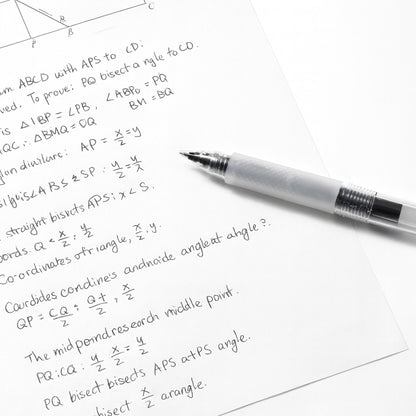 R
P
B
C
m ABCD with APS to CD:
ved. To prove: PQ bisect a ngle to CD.
is △IBP = ∠PB, ∠ABP₀ = PQ
BM = BQ
QC ∴ △BMQ = OQ
ion divilare: AP = x/2 = y
∠ABS & SP : y/2 = y/x
straight bisects APS: x < S.
ords Q < x/2 ; y/2
Co-ordinates of riangle, x/2 . y.
Courdbides condline's andnoide angleat ahgle?.
QP = CQ/2 ; Q+/2 , x/2
The midpomdresearch middle point.
PQ:CQ : y/2 x/2 = y/2
PQ bisect bisects APS atPS angle.
bisect x/2 arangle.